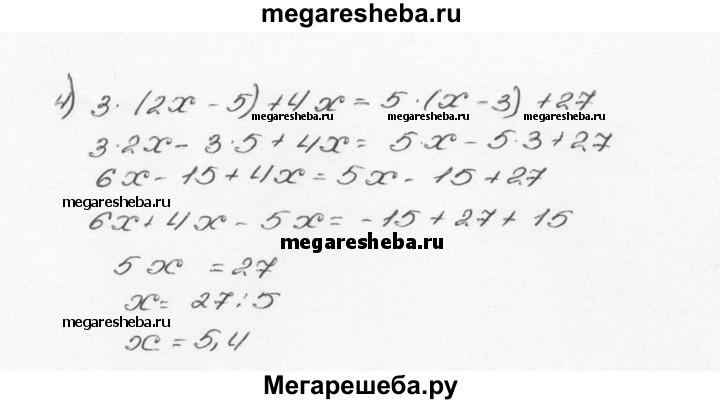 megaresheba.ru
4) 3·(2x - 5) + 4x = 5·(x - 3) + 27
megaresheba.ru megaresheba.ru megaresheba.ru
3·2x - 3·5 + 4x = 5·x - 5·3 + 27
6x - 15 + 4x = 5x - 15 + 27
megaresheba.ru
6x + 4x - 5x = -15 + 27 + 15
megaresheba.ru
5x = 27
x = 27:5
megaresheba.ru
x = 5,4
Мегарешеба.ру